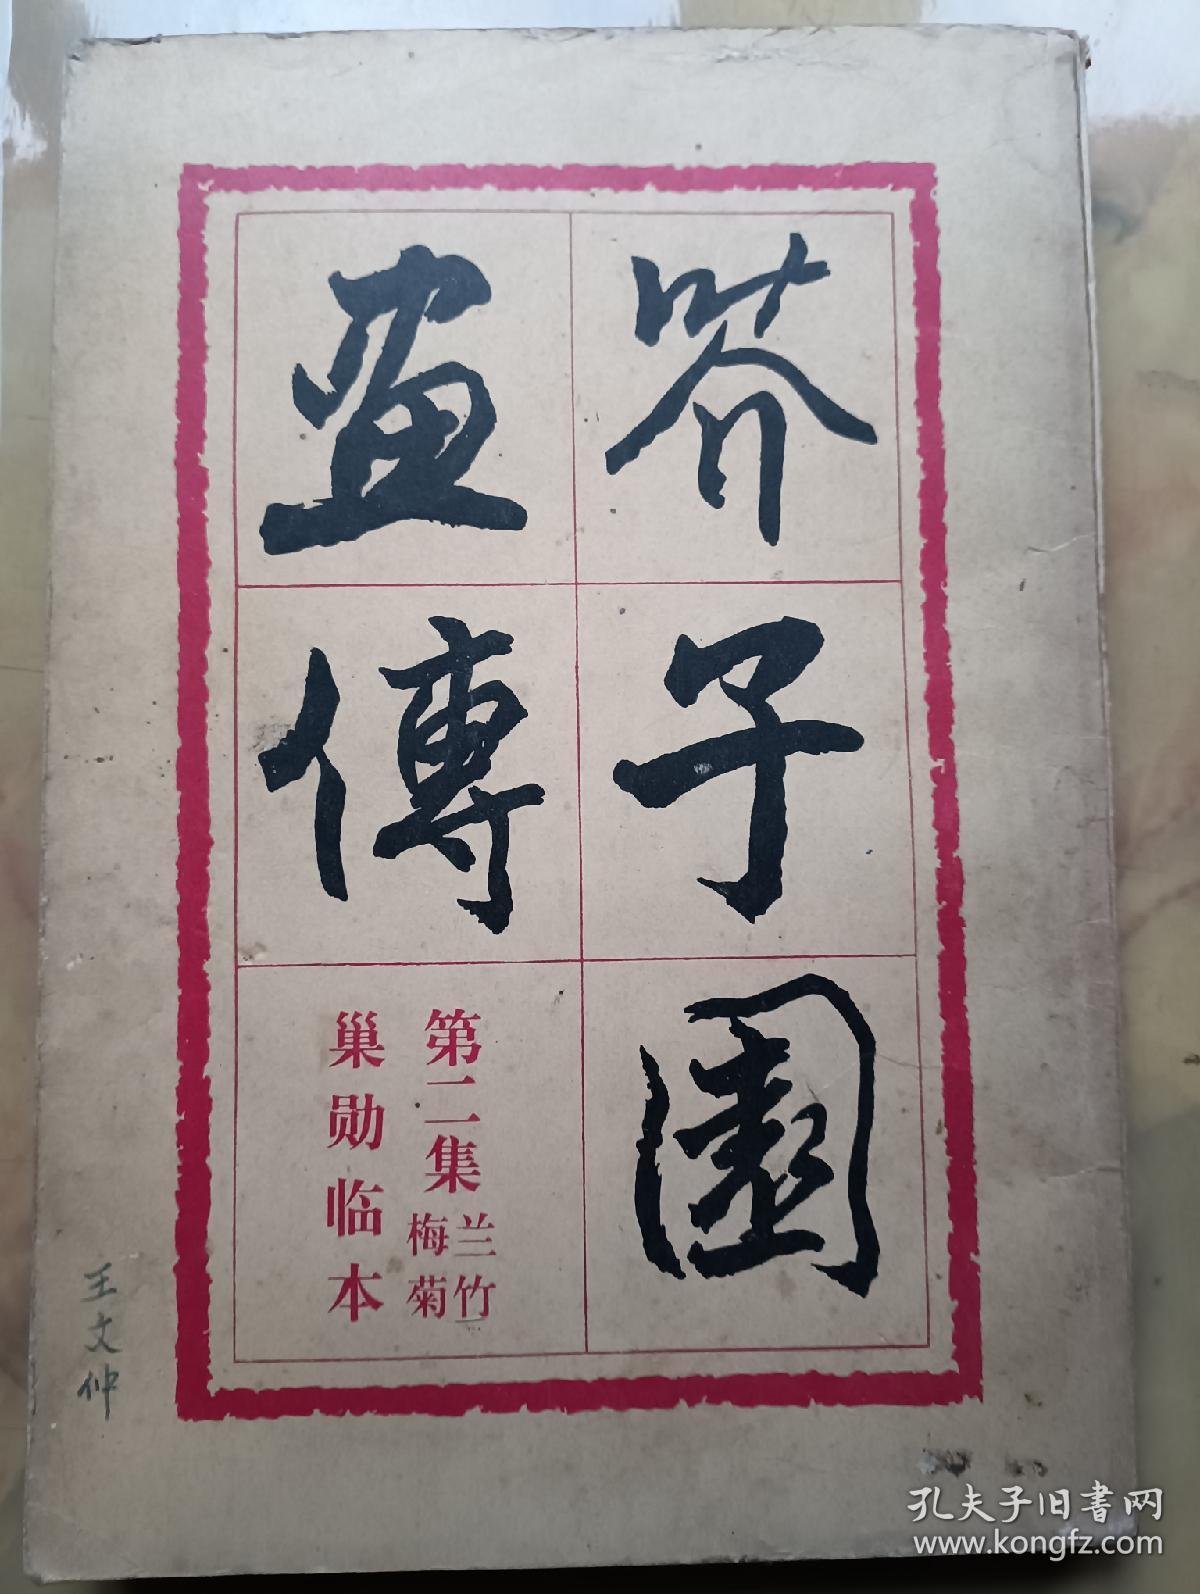 芥子園
畫傳
第二集 兰竹
梅菊
巢勋临本
王文仲
孔夫子旧書网
www.kongfz.com